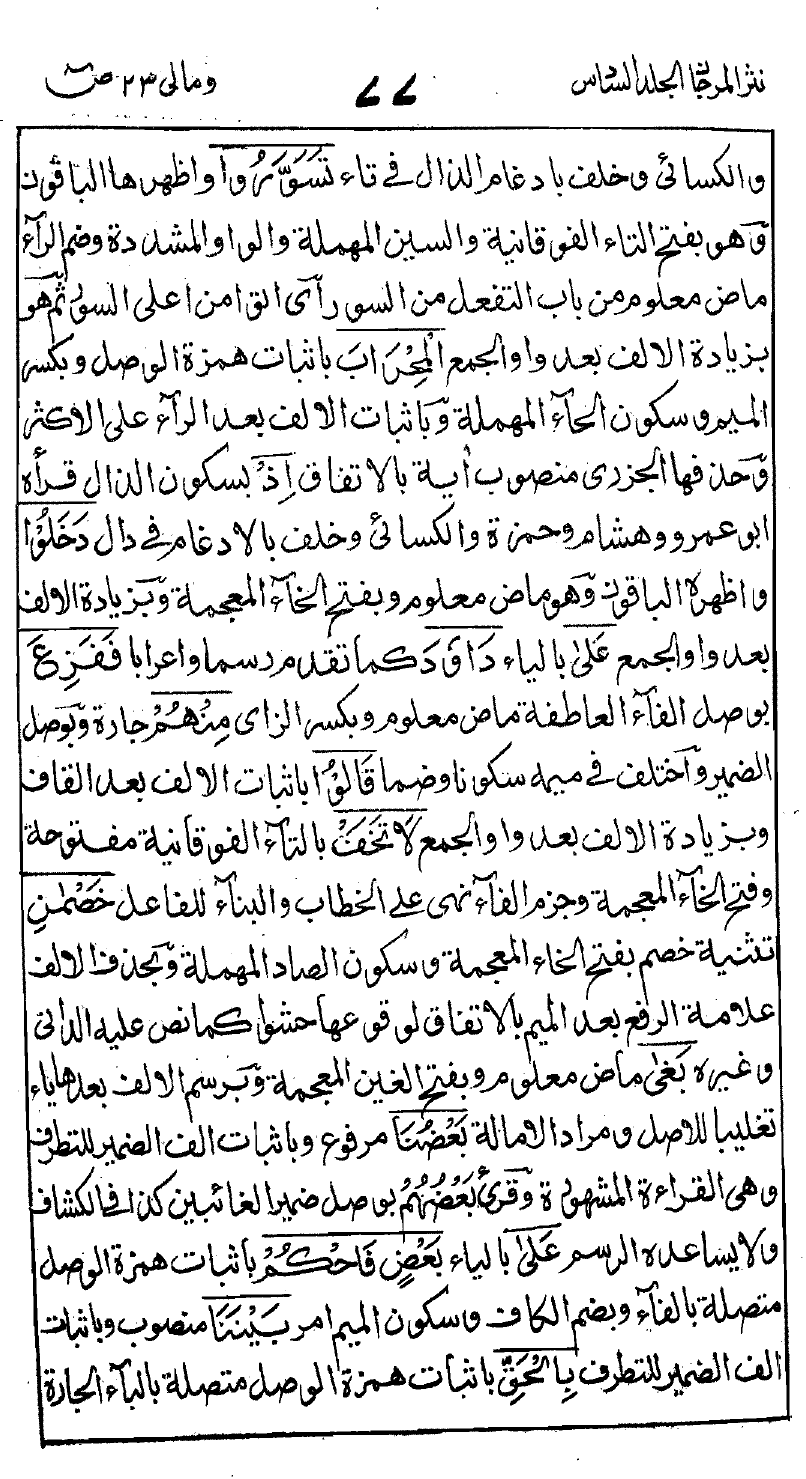 نثر المرجان الجلد السادس ٧٧ ومالی ٢٣ ص
والكسائی وخلف بادغام الذال فے تاء تَسَوَّرُوا واظهرها الباقون
وَهو بفتح التاء الفوقانية والسين المهملة والواو المشددة وضم الرآء
ماض معلوم من باب التفعل من السور رأی القامن اعلی السور ثم هو
بزيادة الالف بعد واو الجمع الْمِحْرَابَ باثبات همزة الوصل وبكسر
الميم وسكون الحآء المهملة وَباثبات الالف بعد الرآء علی الاكثر
وَحذفها الجزری منصوب أية بالاتفاق اِذْ بسكون الذال قرأه
ابوعمرو وهشام وحمزة والكسائی وخلف بالادغام فے دال دَخَلُوْا
واظهره الباقون وَهو ماض معلوم وبفتح الخآء المعجمة وَبزيادة الالف
بعد واو الجمع عَلٰی بالياء دَاوٗدَ كما تقدم رسما واعرابا فَفَزِعَ
بوصل الفآء العاطفة ماض معلوم وبكسر الزای مِنْهُمْ جارة وَبوصل
الضمير وَاختلف فے ميمه سكونا وضما قَالُوْا باثبات الالف بعد القاف
وبزيادة الالف بعد واو الجمع لَا تَخَفْ بالتآء الفوقانية مفتوحة
وفتح الخآء المعجمة وجزم الفآء نهی علے الخطاب والبنآء للفاعل خَصْمٰنِ
تثنية خصم بفتح الخاء المعجمة وسكون الصاد المهملة وَبحذف الالف
علامة الرفع بعد الميم بالاتفاق لوقوعها حشوا كما نص عليه الدانی
وغيره بَغٰی ماض معلوم وبفتح الغين المعجمة وَبرسم الالف بعدها ياء
تغليبا للاصل ومراد الامالة بَعْضُنَا مرفوع وباثبات الف الضمير للتطرف
وهی القراءة المشهورة وَقرئ بَعْضُهُمْ بوصل ضمير الغائبين كذا فے الكشاف
ولا يساعده الرسم عَلٰی بالياء بَعْضٍ فَاحْكُمْ باثبات همزة الوصل
متصلة بالفآء وبضم الكاف وسكون الميم امر بَيْنَنَا منصوب وباثبات
الف الضمير للتطرف بِالْحَقِّ باثبات همزة الوصل متصلة بالبآء الجارة